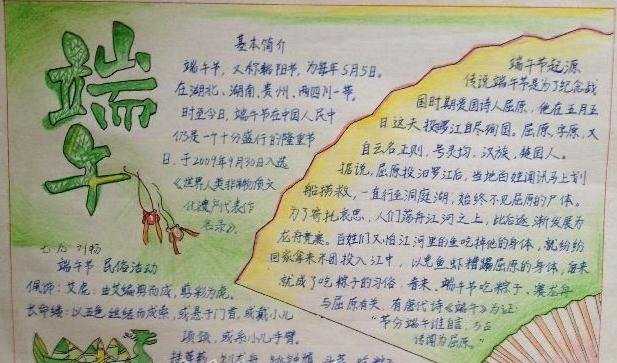 端午
基本简介
端午节，又称端阳节，为每年5月5日。
在湖北、湖南、贵州、四川一带。
时至今日，端午节在中国人民中
仍是一个十分盛行的隆重节
日，于2009年9月30日入选
《世界人类非物质文
化遗产代表作
名录》。
端午节 民俗活动
佩饰：艾虎：由艾编剪而成，剪彩为虎。
长命缕：以五色丝结而成索，或悬于门首，或戴小儿
项颈，或系小儿手臂。
端午节起源
传说端午节是为了纪念战
国时期爱国诗人屈原，他在五月五
日这天投汨罗江自尽殉国。屈原，字原，又
自云名正则，号灵均，汉族，楚国人。
据说，屈原投汨罗江后，当地百姓闻讯马上划
船捞救，一直行至洞庭湖，始终不见屈原的尸体。
为了寄托哀思，人们荡舟江河之上，此后逐渐发展为
龙舟竞赛。百姓们又怕江河里的鱼吃掉他的身体，就纷纷
回家拿来米团投入江中，以免鱼虾糟蹋屈原的身体，后来
就成了吃粽子的习俗。看来，端午节吃粽子、赛龙舟
与屈原有关，有唐代诗《端午》为证：
“节分端午谁自言，万古
传闻为屈原。”